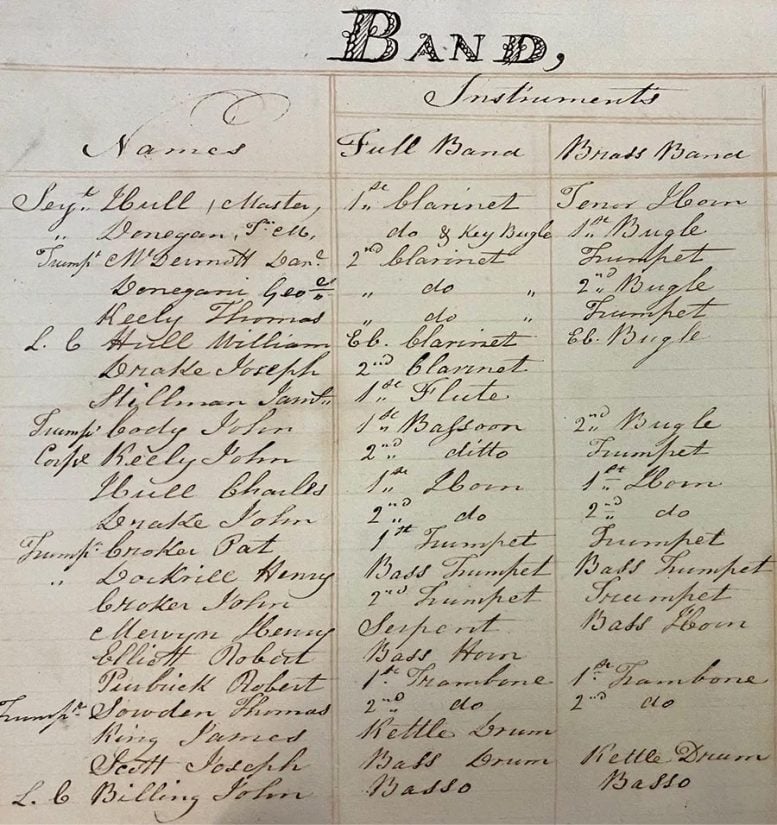 Band,
Instruments
Names Full Band Brass Band
Serjt. Hull, Master, 1st Clarinet Tenor Horn
" Donegan, T. M, do & Key Bugle 1st Bugle
Trumpr McDermott Danl 2nd Clarinet Trumpet
Donegani Geo " do " 2nd Bugle
Keely Thomas " do " Trumpet
L. C Hull William Eb. Clarinet Eb. Bugle
Drake Joseph 2nd Clarinet
Stillman Jams. 1st Flute
Trumpr Cody John 1st Bassoon 2nd Bugle
Corpl Keely John 2nd ditto Trumpet
Hull Charles 1st Horn 1st Horn
Drake John 2nd do 2nd do
Trumpr Croker Pat 1st Trumpet Trumpet
" Dockrill Henry Bass Trumpet Bass Trumpet
Croker John 2nd Trumpet Trumpet
Mervyn Henry Serpent Bass Horn
Elliott Robert Bass Horn
Robert 1st Trambone 1st Trambone
Trumpr Sowden Thomas 2nd do 2nd do
King James Kettle Drum
Scott Joseph Bass Drum Kettle Drum
L. C Billing John Basso Basso